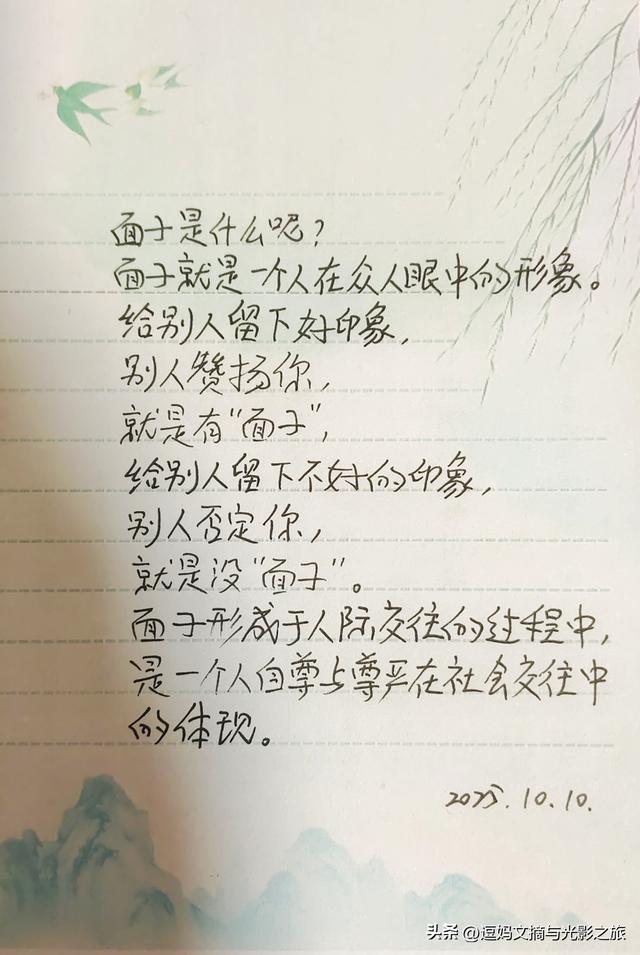 面子是什么呢？
面子就是一个人在众人眼中的形象。
给别人留下好印象，
别人赞扬你，
就是有“面子”，
给别人留下不好的印象，
别人否定你，
就是没“面子”。
面子形成于人际交往的过程中，
是一个人自尊与尊严在社会交往中
的体现。
2025.10.10.
头条 @逗妈文摘与光影之旅